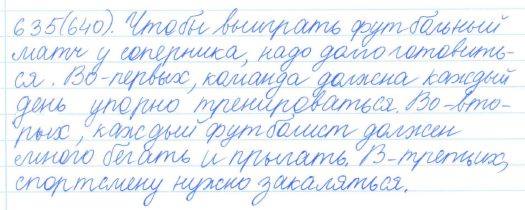 635(640). Чтобы выиграть футбольный
матч у соперника, надо долго готовить-
ся. Во-первых, команда должна каждый
день упорно тренироваться. Во-вто-
рых, каждый футболист должен
много бегать и прыгать. В-третьих,
спортсмену нужно закаляться.